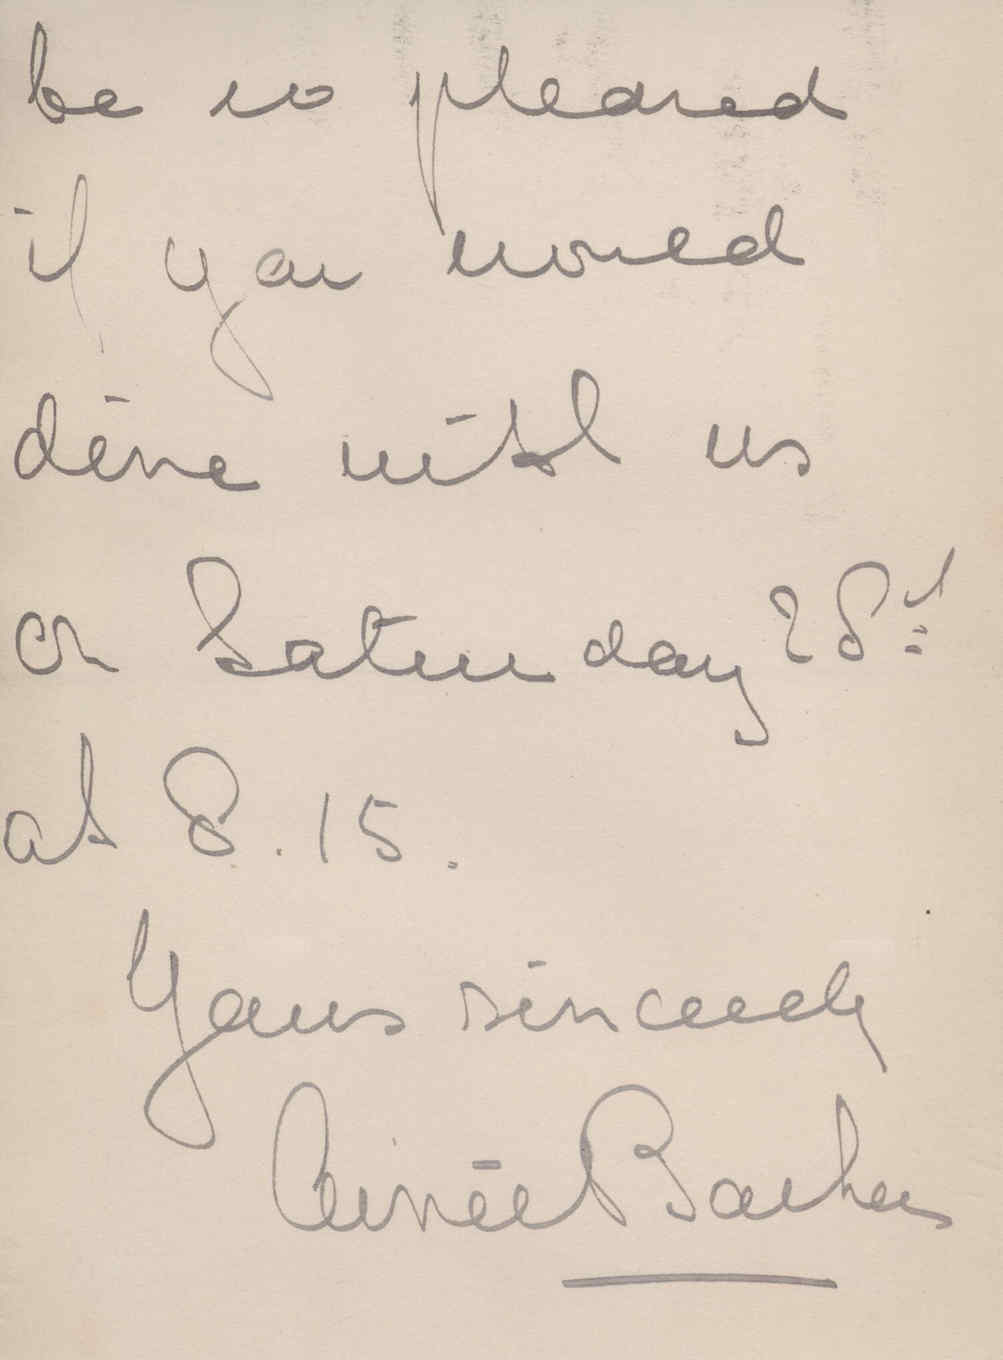 be so pleased
if you would
dine with us
on Saturday 28th
at 8.15.
Yours sincerely
Aimée